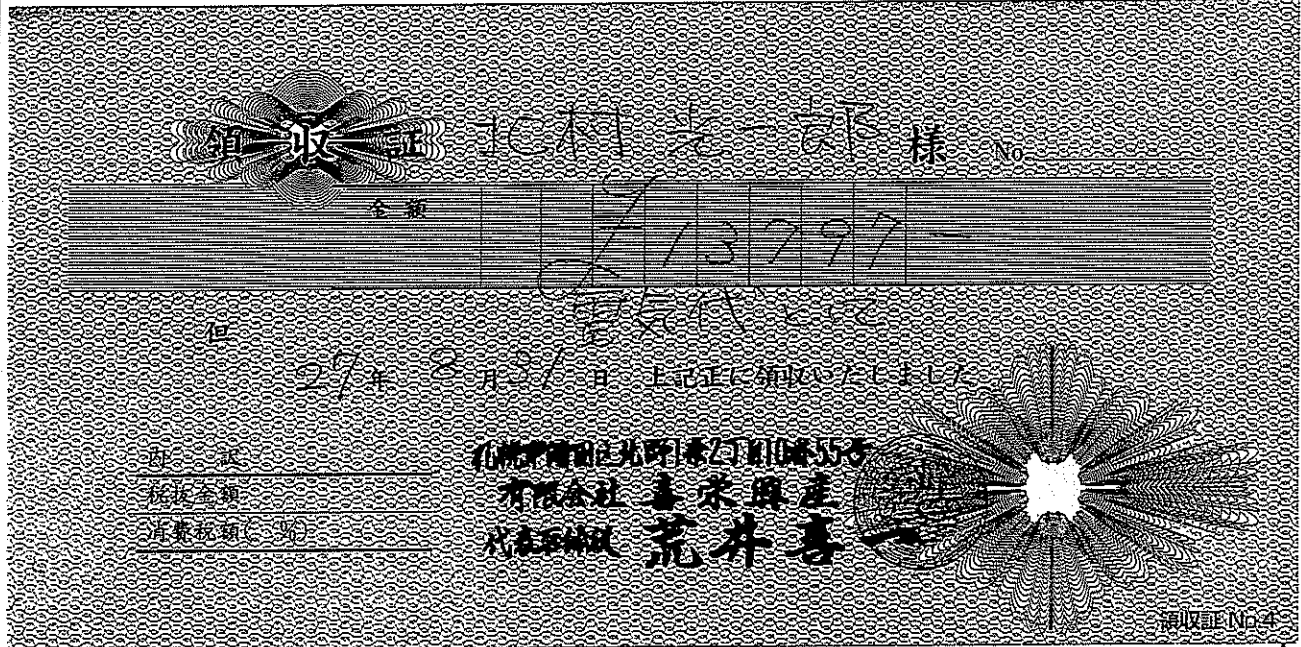 領収証 北村光一郎 様 No.
金額 ¥13797-
但 電気代として
27年8月31日 上記正に領収いたしました
内訳
税抜金額
消費税額( %)
札幌市清田区北野1条2丁目10番55号
有限会社 喜栄興産
代表取締役 荒井喜一
領収証 No.4